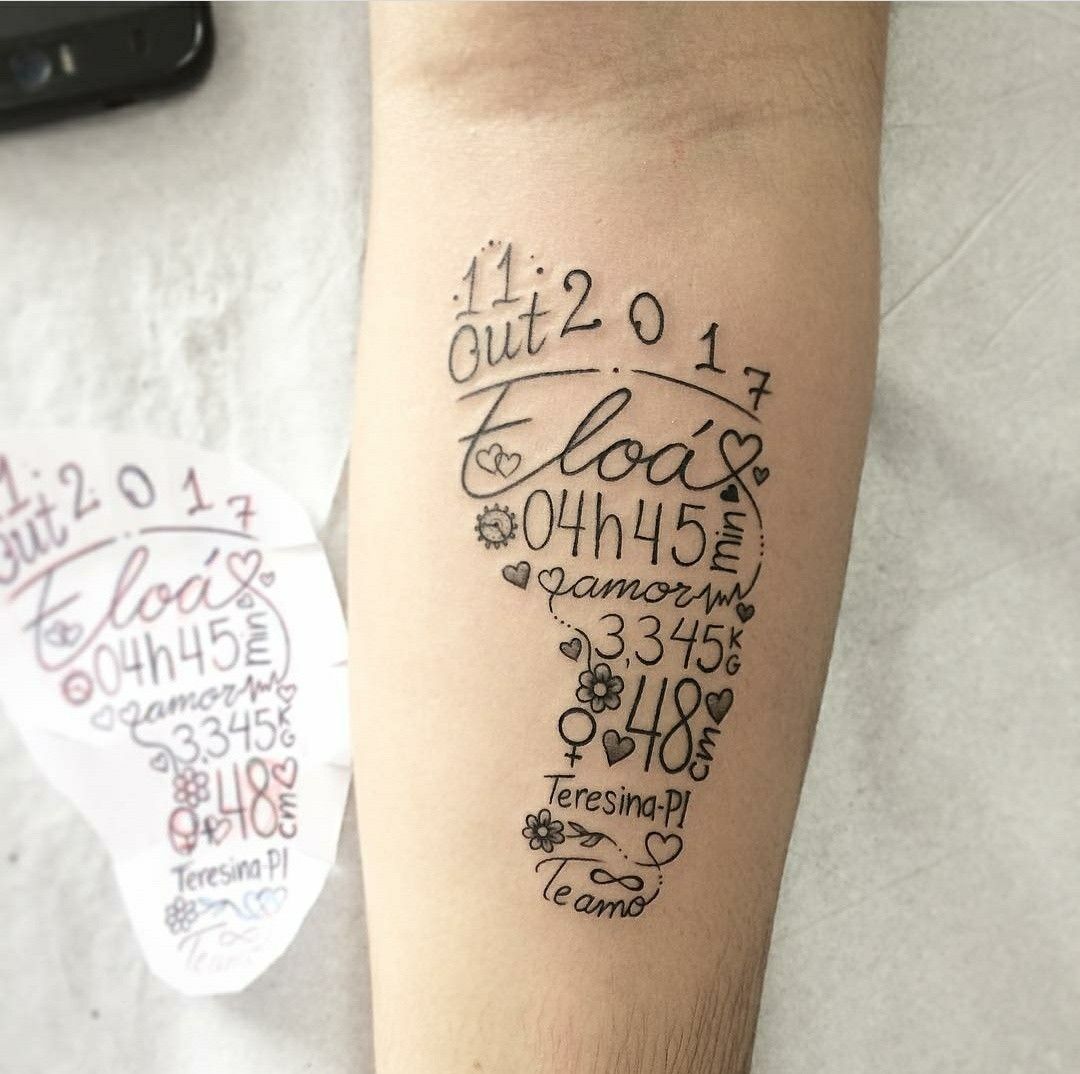 11 2017
Out
Eloá
04h45min
amor
3,345KG
48cm
Teresina-PI
Te amo
11 2017
Out
Eloá
04h45min
amor
3,345KG
48cm
Teresina-PI